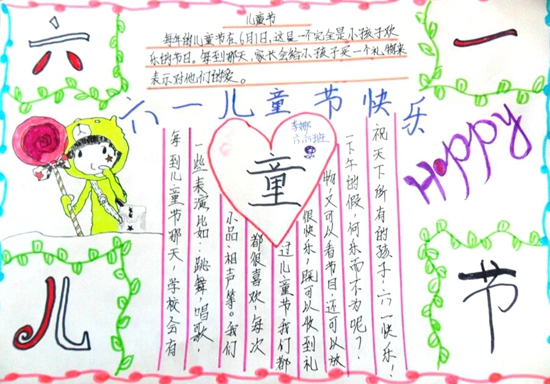 六
一
儿童节
每年的儿童节在6月1日,这是一个完全是小孩子欢
乐的节日。每到那天,家长会给小孩子买一个礼物来
表示对他们的爱。
六一儿童节快乐
Happy
童
每到儿童节那天,学校会有
一些表演比如:跳舞,唱歌,
小品,相声等。我们
都很喜欢,每次
过儿童节我们都
很快乐,既可以收到礼
物,又可以看节目,还可以放
一下午的假,何乐而不为呢?
祝天下所有的孩子:六一快乐!
儿
节